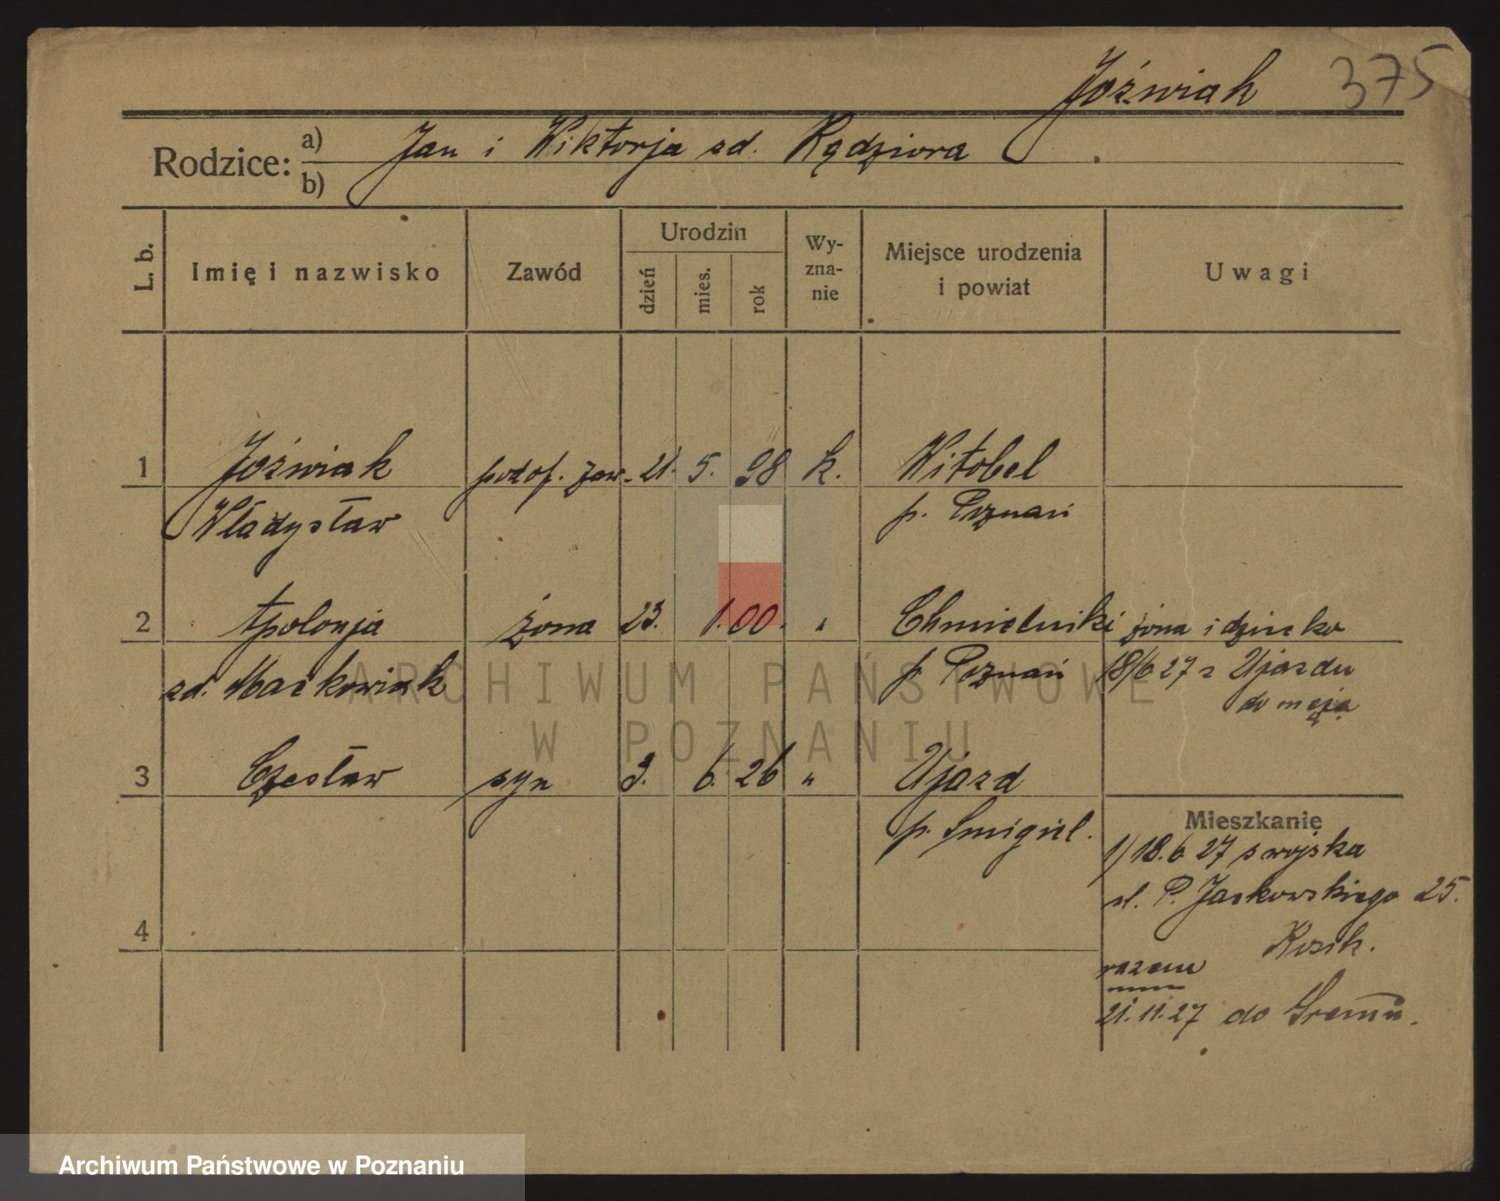 Jóźwiak 375
Rodzice: a) Jan i Wiktorja zd. Rądziora
b)
L. b. Imię i nazwisko Zawód Urodzin dzień mies. rok Wy-zna-nie Miejsce urodzenia i powiat Uwagi
1 Jóźwiak podof. zaw. 21. 5. 98 k. Witobel
Władysław p. Poznań
2 Apolonja żona 23. 1. 00. " Chmielniki żona i dziecko
zd. Maćkowiak p. Poznań 18/6 27 z Ujazdu
do męża
3 Czesław syn 3. 6. 26 " Ujazd
p. Śmigiel.
Mieszkanie
1) 18. 6 27 z wojska
ul. P. Jackowskiego 25.
4
razem
21.11.27 do Śremu.
ARCHIWUM PAŃSTWOWE
W POZNANIU
Archiwum Państwowe w Poznaniu